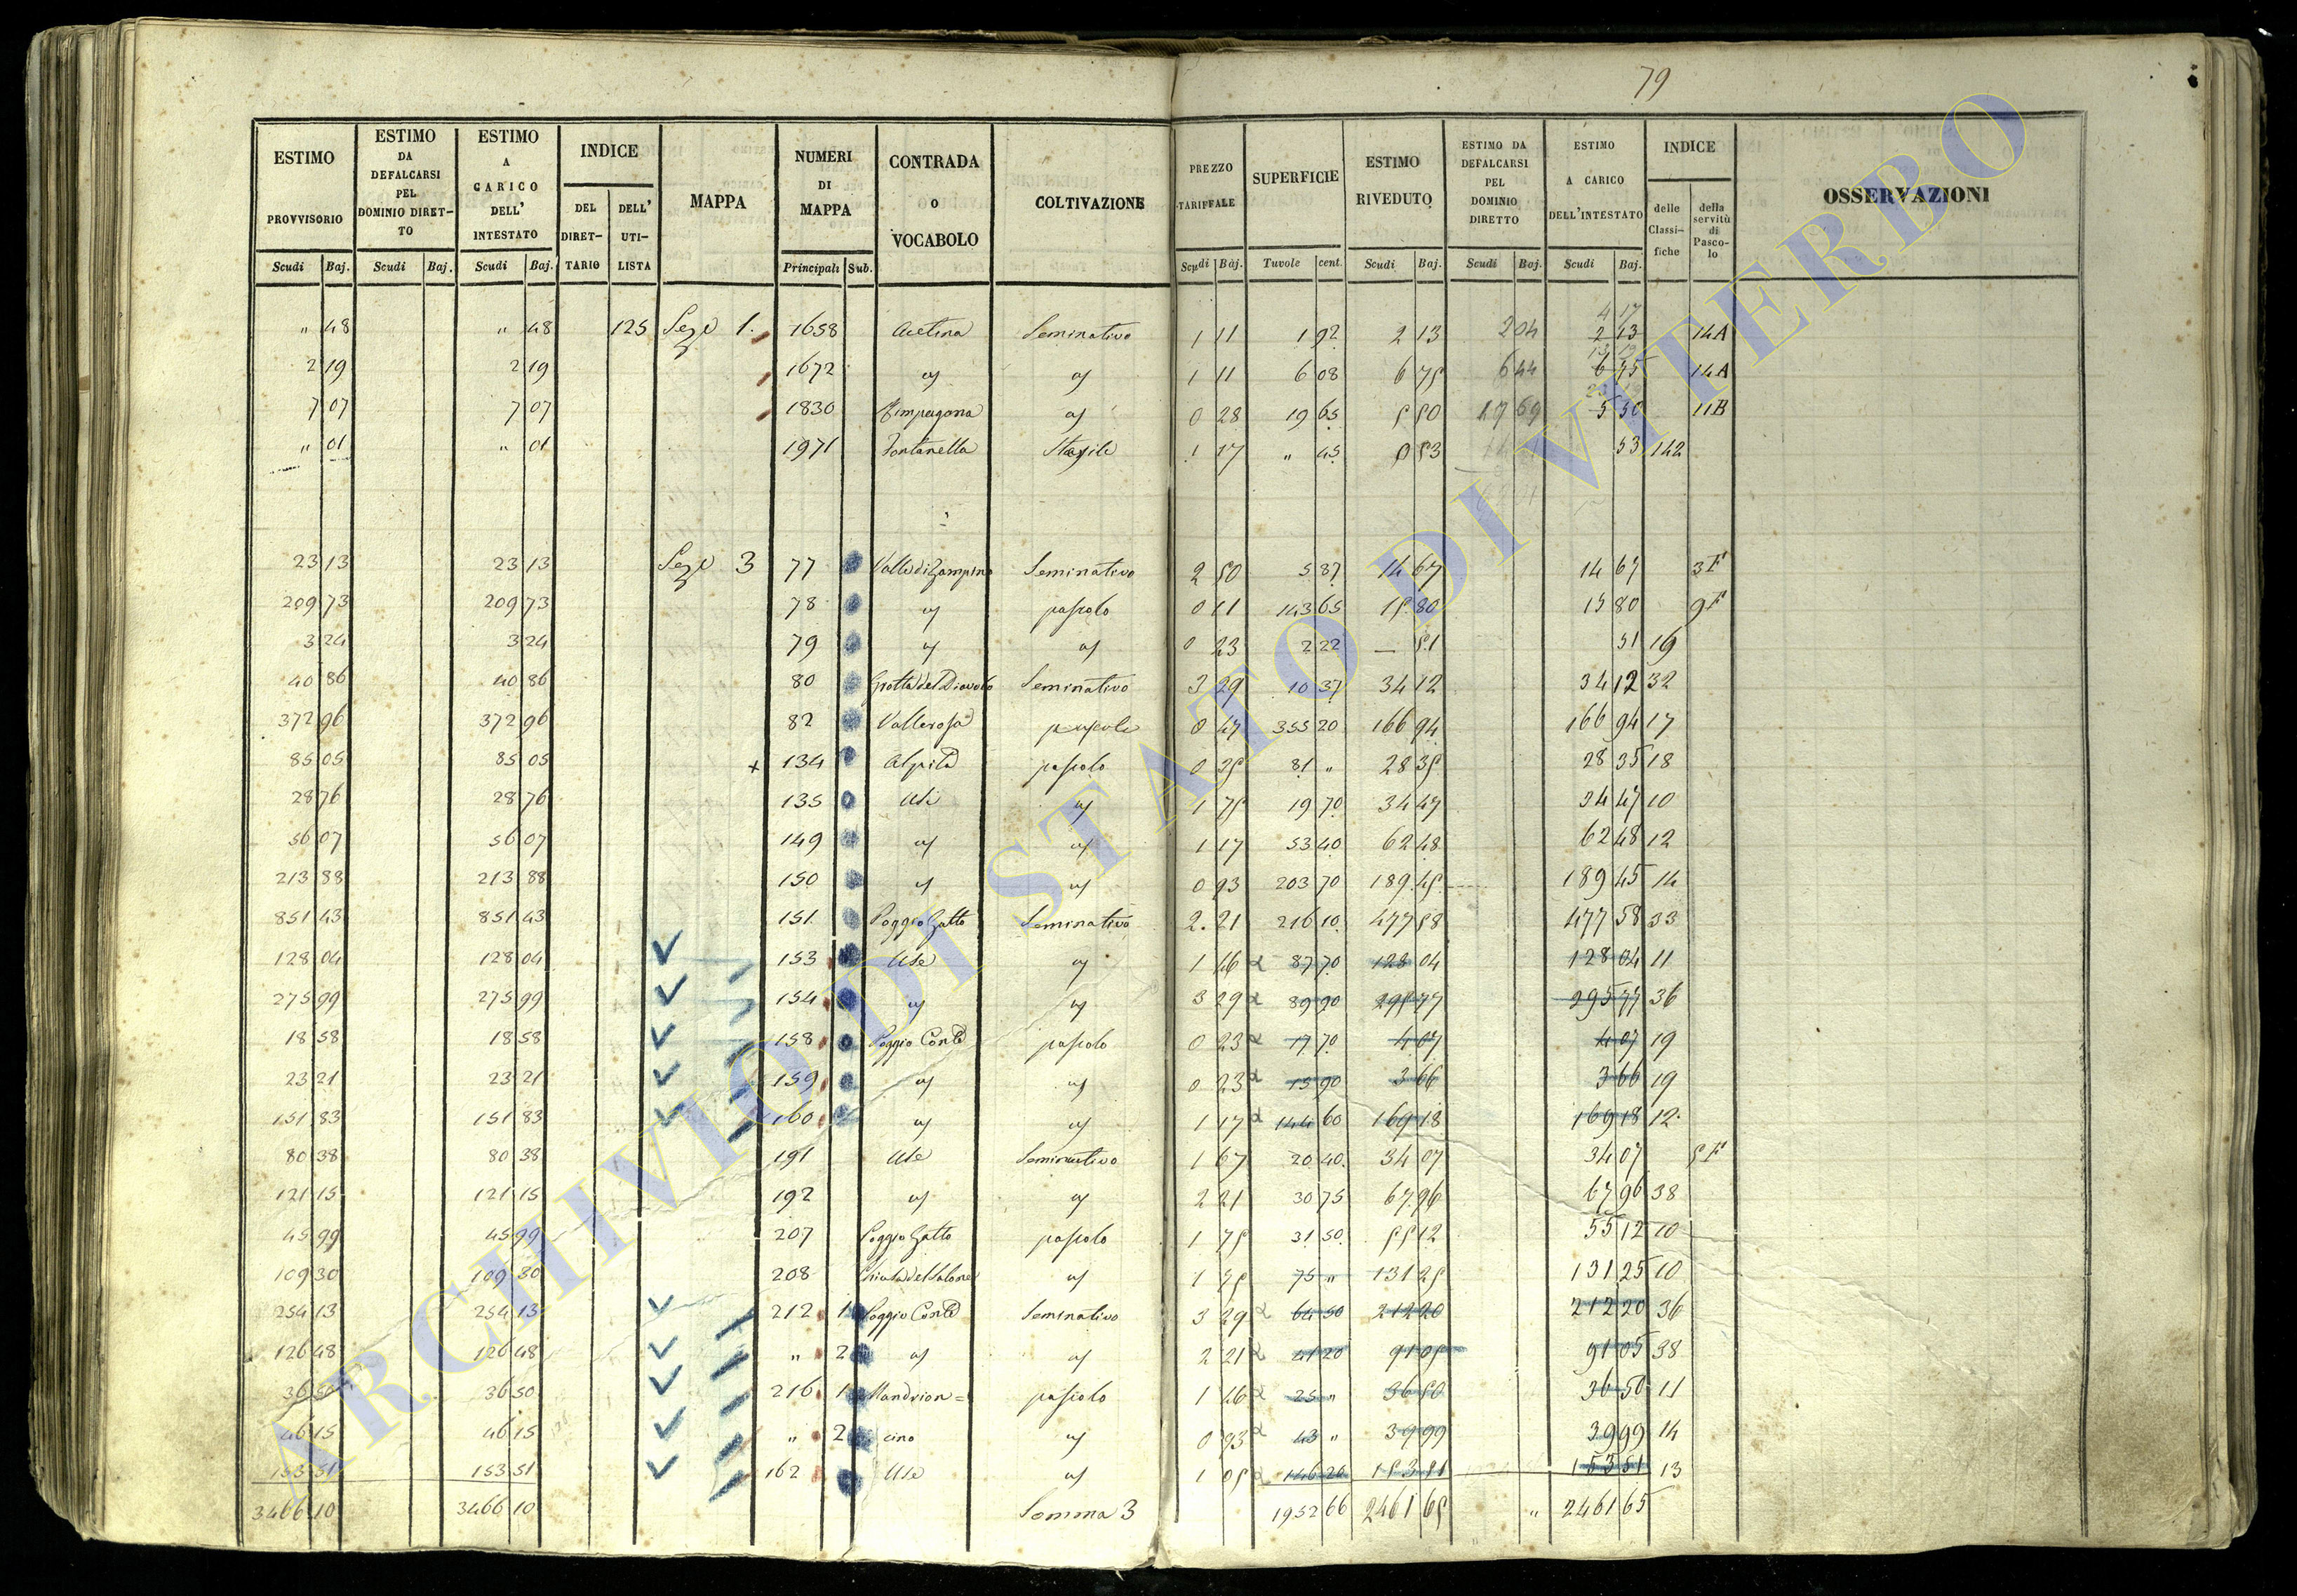 79
ESTIMO PROVVISORIO Scudi Baj. ESTIMO DA DEFALCARSI PEL DOMINIO DIRET-TO Scudi Baj. ESTIMO A CARICO DELL' INTESTATO Scudi Baj. INDICE DEL DIRET-TARIO DELL' UTI-LISTA MAPPA NUMERI DI MAPPA Principali Sub. CONTRADA O VOCABOLO COLTIVAZIONE PREZZO TARIFFALE Scudi Baj. SUPERFICIE Tavole cent. ESTIMO RIVEDUTO Scudi Baj. ESTIMO DA DEFALCARSI PEL DOMINIO DIRETTO Scudi Baj. ESTIMO A CARICO DELL'INTESTATO Scudi Baj. INDICE delle Classi-fiche della servitù di Pasco-lo OSSERVAZIONI
4 17
" 48 " 48 125 Sez.e 1. 1658 Acetina Seminativo 1 11 1 92 2 13 2 04 2 13 14A
2 19 2 19 1672 " " 1 11 6 08 6 75 6 44 6 75 14A
7 07 7 07 1830 " 0 28 19 65 5 50 17 69 5 50 11B
" 01 " 01 1971 Fontanella 1 17 " 45 0 53 53 142
23 13 23 13 Sez.e 3 77 Valle di Zampino Seminativo 2 50 5 87 14 67 14 67 3F
209 73 209 73 78 " pascolo 0 11 143 65 15 80 15 80 9F
3 24 3 24 79 " " 0 23 2 22 — 51 51 19
40 86 40 86 80 Grotta del Diavolo Seminativo 3 29 10 37 34 12 34 12 32
372 96 372 96 82 Vallerosa pascolo 0 47 355 20 166 94 166 94 17
85 05 85 05 + 134 pascolo 0 35 81 " 28 35 28 35 18
28 76 28 76 135 " 1 75 19 70 34 47 34 47 10
56 07 56 07 149 " " 1 17 53 40 62 48 62 48 12
213 88 213 88 150 " " 0 93 203 70 189 45 189 45 14
851 43 851 43 151 Poggio Gatto Seminativo 2 21 216 10 477 58 477 58 33
128 04 128 04 153 Use " 1 46 87 70 128 04 128 04 11
275 99 275 99 154 " " 3 29 89 90 295 77 295 77 36
18 58 18 58 158 Poggio Conte pascolo 0 23 17 70 4 07 4 07 19
23 21 23 21 159 " " 0 23 15 90 3 66 3 66 19
151 83 151 83 160 " " 1 17 144 60 169 18 169 18 12
80 38 80 38 191 Use Seminativo 1 67 20 40 34 07 34 07 5F
121 15 121 15 192 " " 2 21 30 75 67 96 67 96 38
45 99 45 99 207 Poggio Gatto pascolo 1 75 31 50 55 12 55 12 10
109 30 109 30 208 " 1 75 75 " 131 25 131 25 10
254 13 254 13 212 1 Poggio Conte Seminativo 3 29 64 50 212 20 212 20 36
126 48 126 48 " 2 " " 2 21 41 20 91 05 91 05 38
36 50 36 50 216 1 Mandrion= pascolo 1 46 25 " 36 50 36 50 11
46 15 46 15 " 2 cino " 0 93 43 " 39 99 39 99 14
153 51 153 51 162 Use " 1 05 146 20 153 51 153 51 13
3466 10 3466 10 Somma 3 1952 66 2461 65 " 2461 65
ARCHIVIO DI STATO DI VITERBO